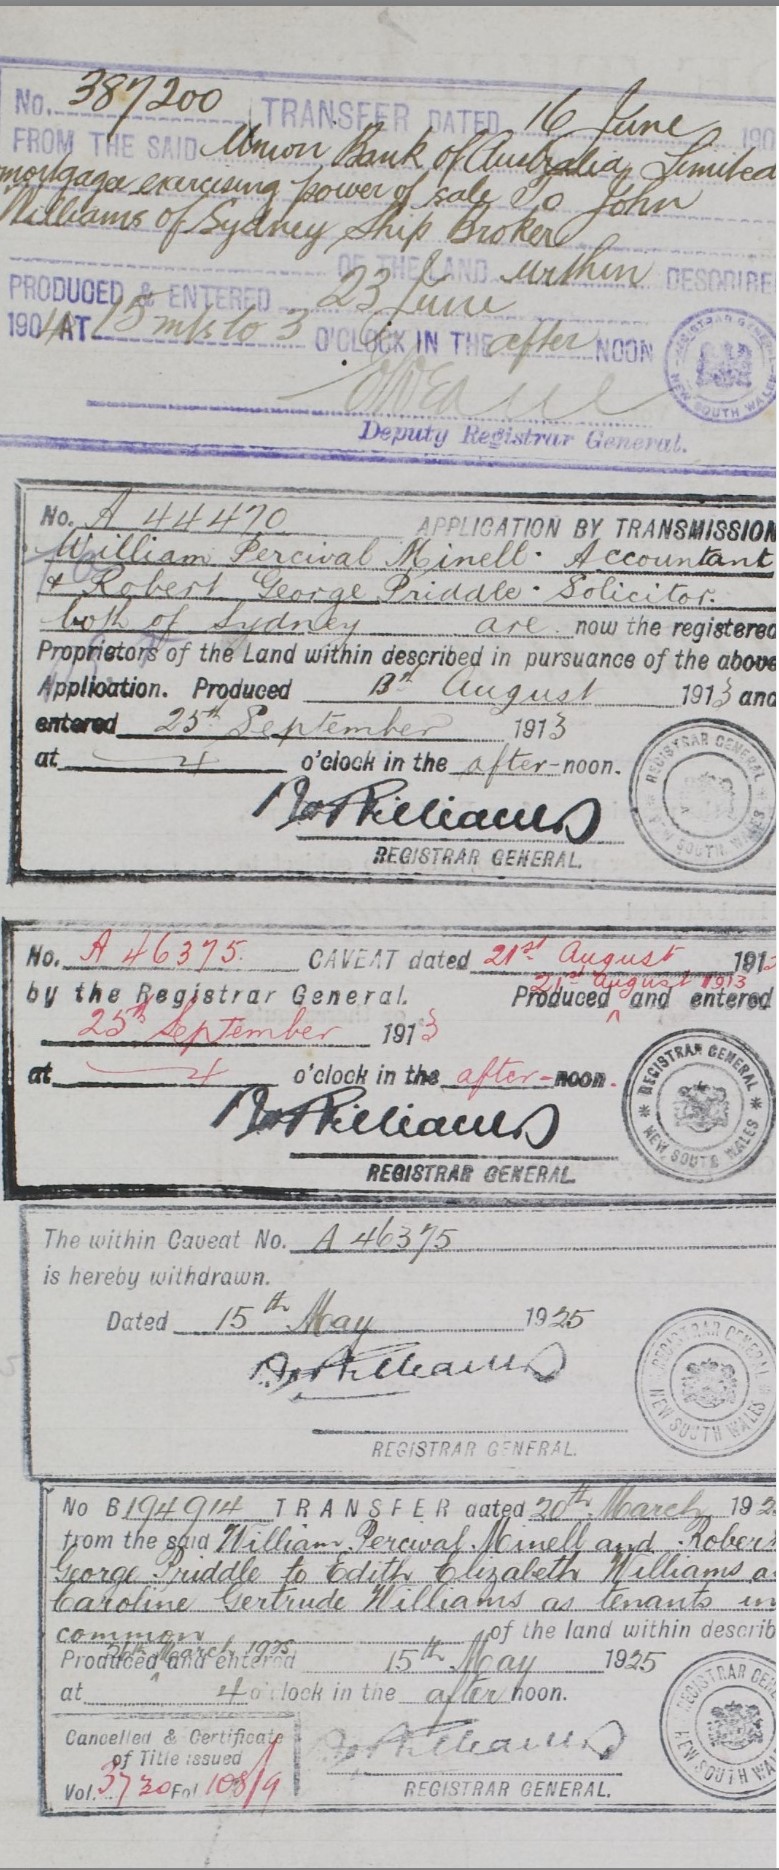 No. 387200 TRANSFER DATED 16 June 190
FROM THE SAID Union Bank of Australia Limited
mortgagee exercising power of sale to John
Williams of Sydney Ship Broker
OF THE LAND within DESCRIBE
PRODUCED & ENTERED 23 June
1904 AT 15 mts to 3 O'CLOCK IN THE after NOON
REGISTRAR GENERAL
NEW SOUTH WALES
Deputy Registrar General.
No. A 44470 APPLICATION BY TRANSMISSION
William Percival Minell. Accountant
& Robert George Priddle. Solicitor.
both of Sydney are now the registered
Proprietors of the Land within described in pursuance of the above
Application. Produced 13th August 1913 and
entered 25th September 1913
at 4 o'clock in the after-noon.
REGISTRAR GENERAL
NEW SOUTH WALES
Williams
REGISTRAR GENERAL.
No. A 46375. CAVEAT dated 21st August 191
21st August 1913
by the Registrar General. Produced ^ and entered
25th September 1913
at 4 o'clock in the after-noon.
REGISTRAR GENERAL
NEW SOUTH WALES
Williams
REGISTRAR GENERAL.
The within Caveat No. A 46375
is hereby withdrawn.
Dated 15th May 1925
REGISTRAR GENERAL
NEW SOUTH WALES
Williams
REGISTRAR GENERAL.
No B194914 TRANSFER dated 20th March 192
from the said William Percival Minell and Rober
George Priddle to Edith Elizabeth Williams a
Caroline Gertrude Williams as tenants in
common of the land within describ
March 1925
Produced ^ and entered 15th May 1925
at 4 o'clock in the after noon.
REGISTRAR GENE
NEW SOUTH WA
Cancelled & Certificate
of Title issued
Vol. 3730 Fol 108/9
Williams
REGISTRAR GENERAL.